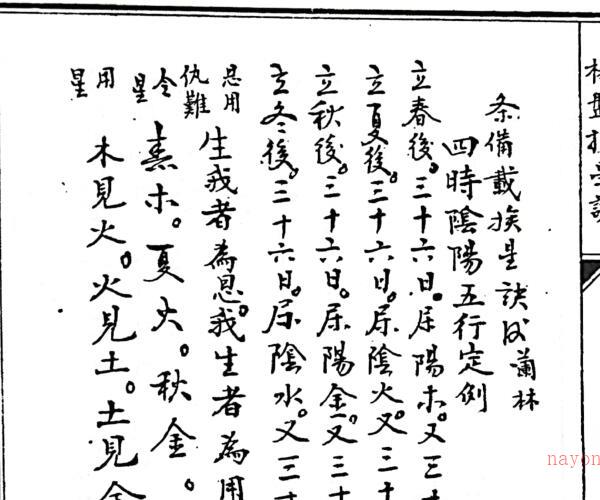 条備載挨星訣 蘭林
四時陰陽五行定例
立春後。三十六日。屬陽木。又三十
立夏後。三十六日。屬陰火。又三十
立秋後。三十六日。屬陽金。又三十
立冬後。三十六日。屬陰水。又三十
恩用仇難 生我者為恩。我生者為用
令星 春木。夏火。秋金。
用星 木見火。火見土。土見金
nayon